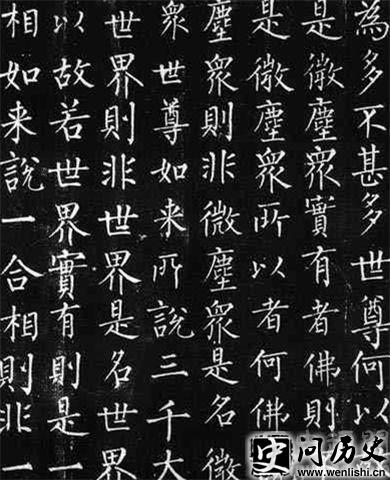 為多不甚多世尊何以
是微塵眾實有者佛則
是微塵眾所以者何佛
塵眾則非微塵眾是名微
眾世尊如来所說三千大
世界則非世界是名世界
以故若世界實有則是一
相如来說一合相則非一
问历史
www.wenlishi.cn